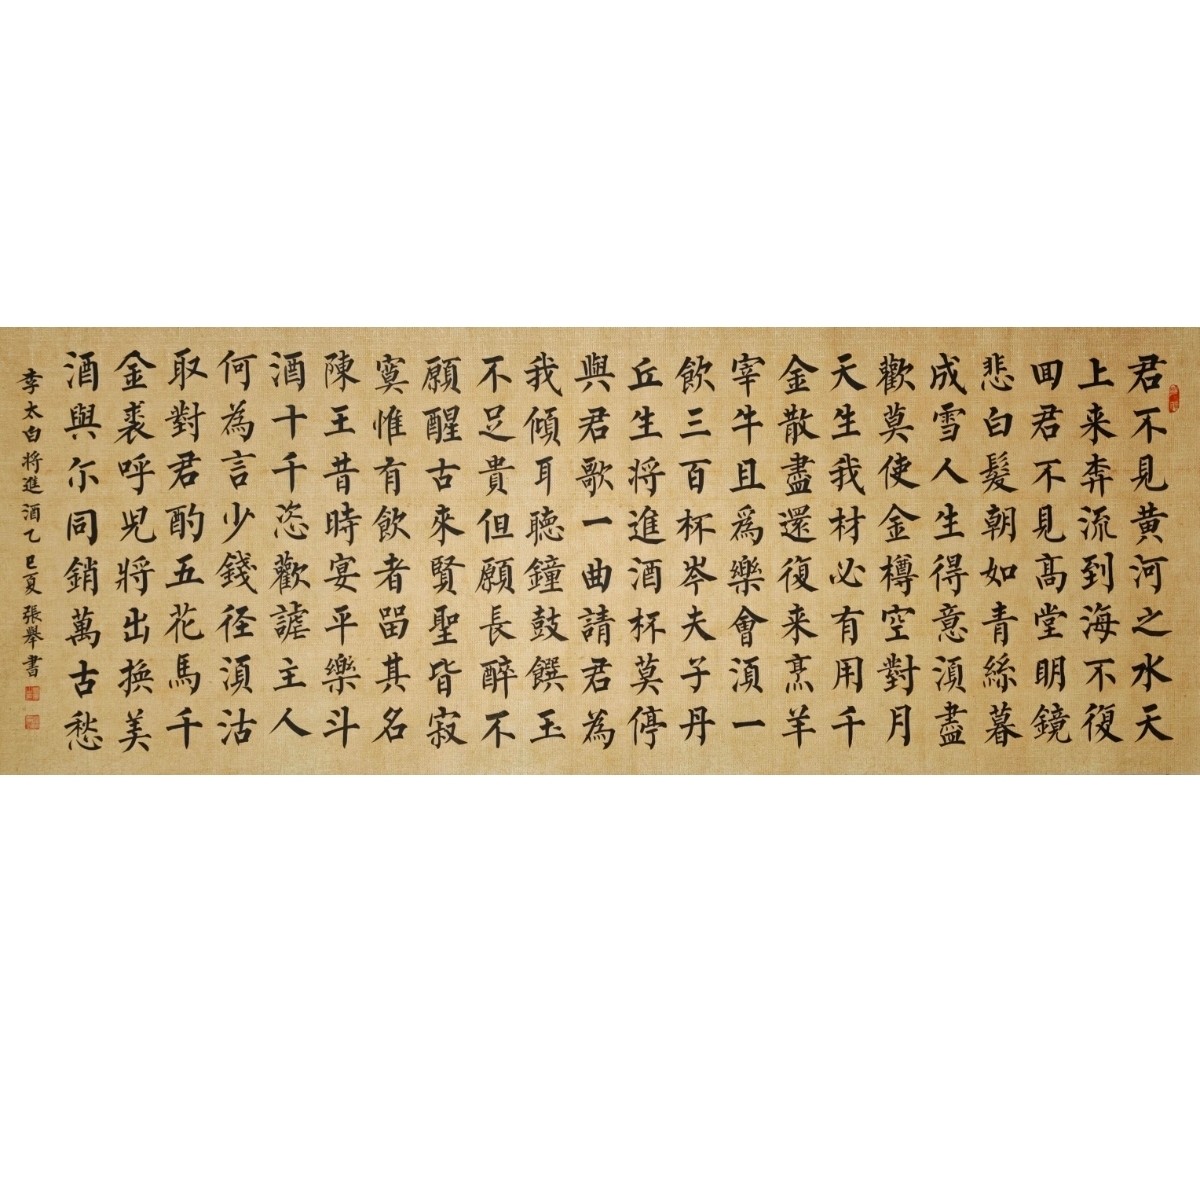 君不見黃河之水天
上来奔流到海不復
回君不見高堂明鏡
悲白髮朝如青絲暮
成雪人生得意湏盡
歡莫使金樽空對月
天生我材必有用千
金散盡還復来烹羊
宰牛且為樂會湏一
飲三百杯岑夫子丹
丘生将進酒杯莫停
與君歌一曲請君為
我傾耳聽鐘鼓饌玉
不足貴但願長醉不
願醒古來賢聖皆寂
寞惟有飲者留其名
陳王昔時宴平樂斗
酒十千恣歡謔主人
何為言少錢径湏沽
取對君酌五花馬千
金裘呼児將出換美
酒與尔同銷萬古愁
李太白将進酒乙巳夏張舉書